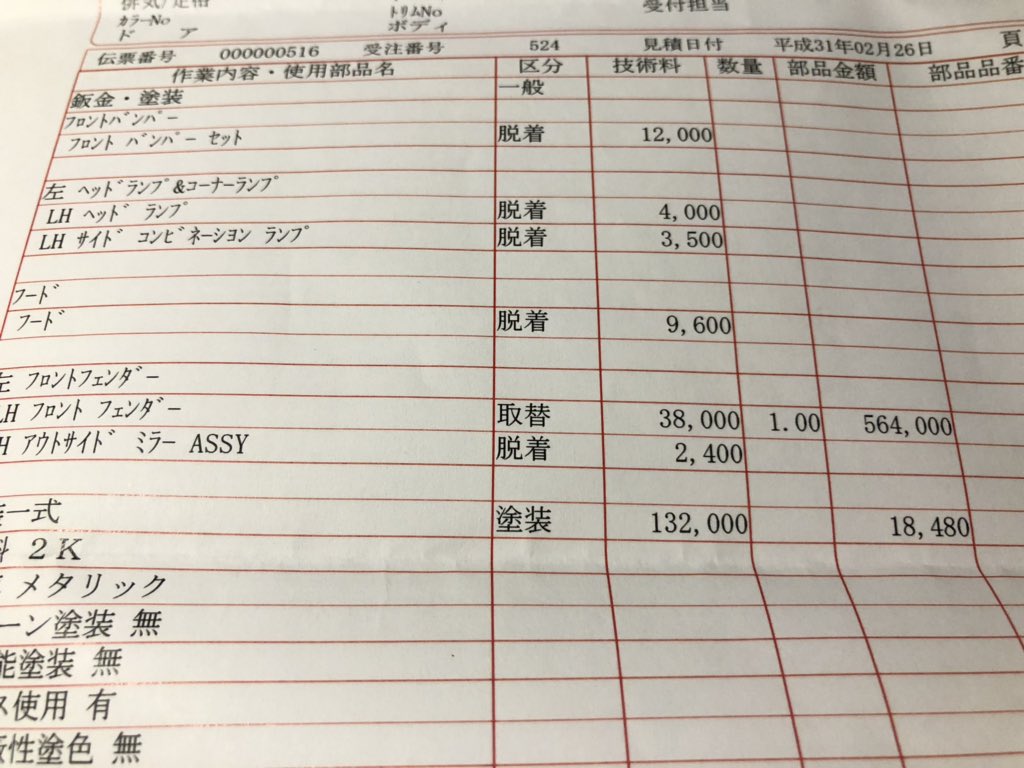 トリムNo 受付担当
カラーNo ボディ
ドア
伝票番号 000000516 受注番号 524 見積日付 平成31年02月26日 頁
作業内容・使用部品名 区分 技術料 数量 部品金額 部品品番
鈑金・塗装 一般
フロントバンパー
フロント バンパー セット 脱着 12,000
左 ヘッドランプ&コーナーランプ
LH ヘッド ランプ 脱着 4,000
LH サイド コンビネーション ランプ 脱着 3,500
フード
フード 脱着 9,600
左 フロントフェンダー
LH フロント フェンダー 取替 38,000 1.00 564,000
H アウトサイド ミラー ASSY 脱着 2,400
一式 塗装 132,000 18,480
料 2K
メタリック
ーン塗装 無
能塗装 無
ス使用 有
性塗色 無